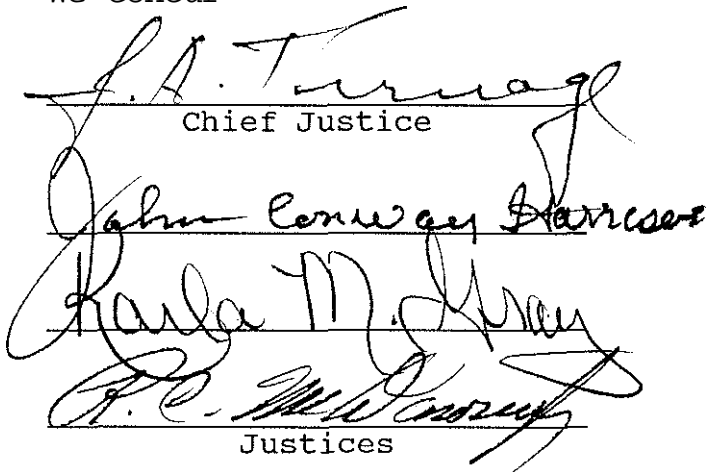 We concur
J. A. Turnage
Chief Justice
John Conway Harrison
Karla M. Gray
R. C. McDonough
Justices